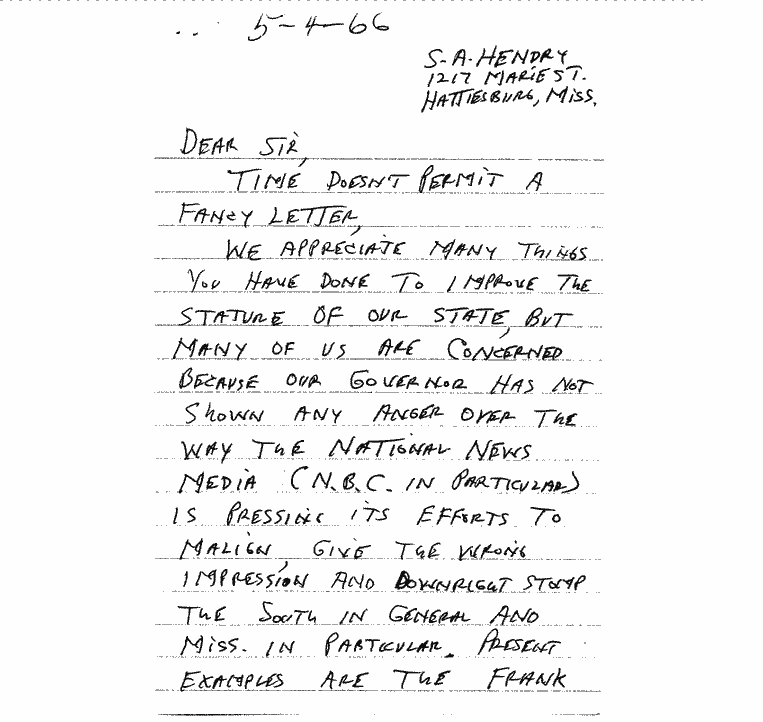 5-4-66
S. A. HENDRY
1217 MARIE ST.
HATTIESBURG, MISS.
DEAR SIR,
TIME DOESN'T PERMIT A
FANCY LETTER,
WE APPRECIATE MANY THINGS
YOU HAVE DONE TO IMPROVE THE
STATURE OF OUR STATE, BUT
MANY OF US ARE CONCERNED
BECAUSE OUR GOVERNOR HAS NOT
SHOWN ANY ANGER OVER THE
WAY THE NATIONAL NEWS
MEDIA (N.B.C. IN PARTICULAR)
IS PRESSING ITS EFFORTS TO
MALIGN, GIVE THE WRONG
IMPRESSION AND DOWNRIGHT STOMP
THE SOUTH IN GENERAL AND
MISS. IN PARTICULAR. PRESENT
EXAMPLES ARE THE FRANK